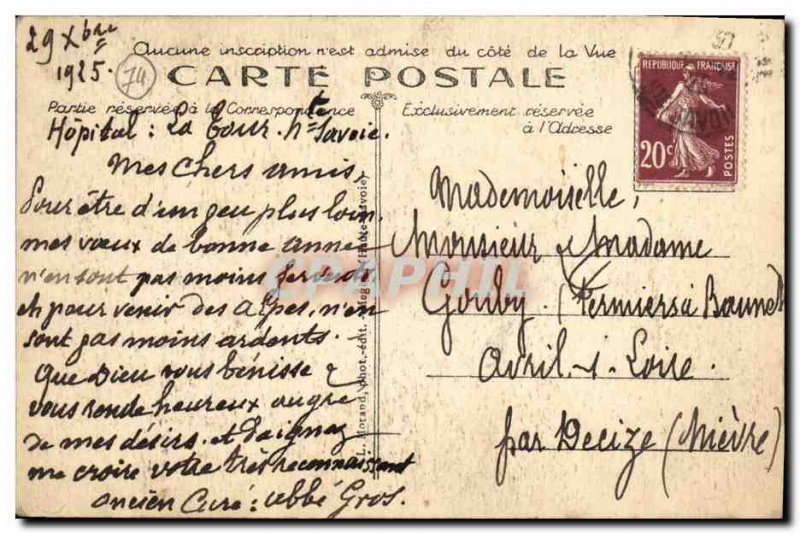 29 Xbre
1925.
74
Aucune inscription n'est admise du côté de la Vue
CARTE POSTALE
Partie réservée à la Correspondance
Exclusivement réservée
à l'Adresse
Hôpital: La Tour. Hte Savoie.
Mes chers amis,
Pour être d'un peu plus loin,
mes vœux de bonne année
n'en sont pas moins fervents
et pour venir des Alpes, n'en
sont pas moins ardents.
Que Dieu vous bénisse &
vous rende heureux au gré
de mes désirs. et daignez
me croire votre très reconnaissant
ancien Curé: abbé Gros.
Morand, phot.-édit.
CPAPHIL
REPUBLIQUE FRANÇAISE
20c
POSTES
Mademoiselle,
Monsieur & Madame
Gouby (Fermiers à
Avril-s-Loire.
par Decize (Nièvre)